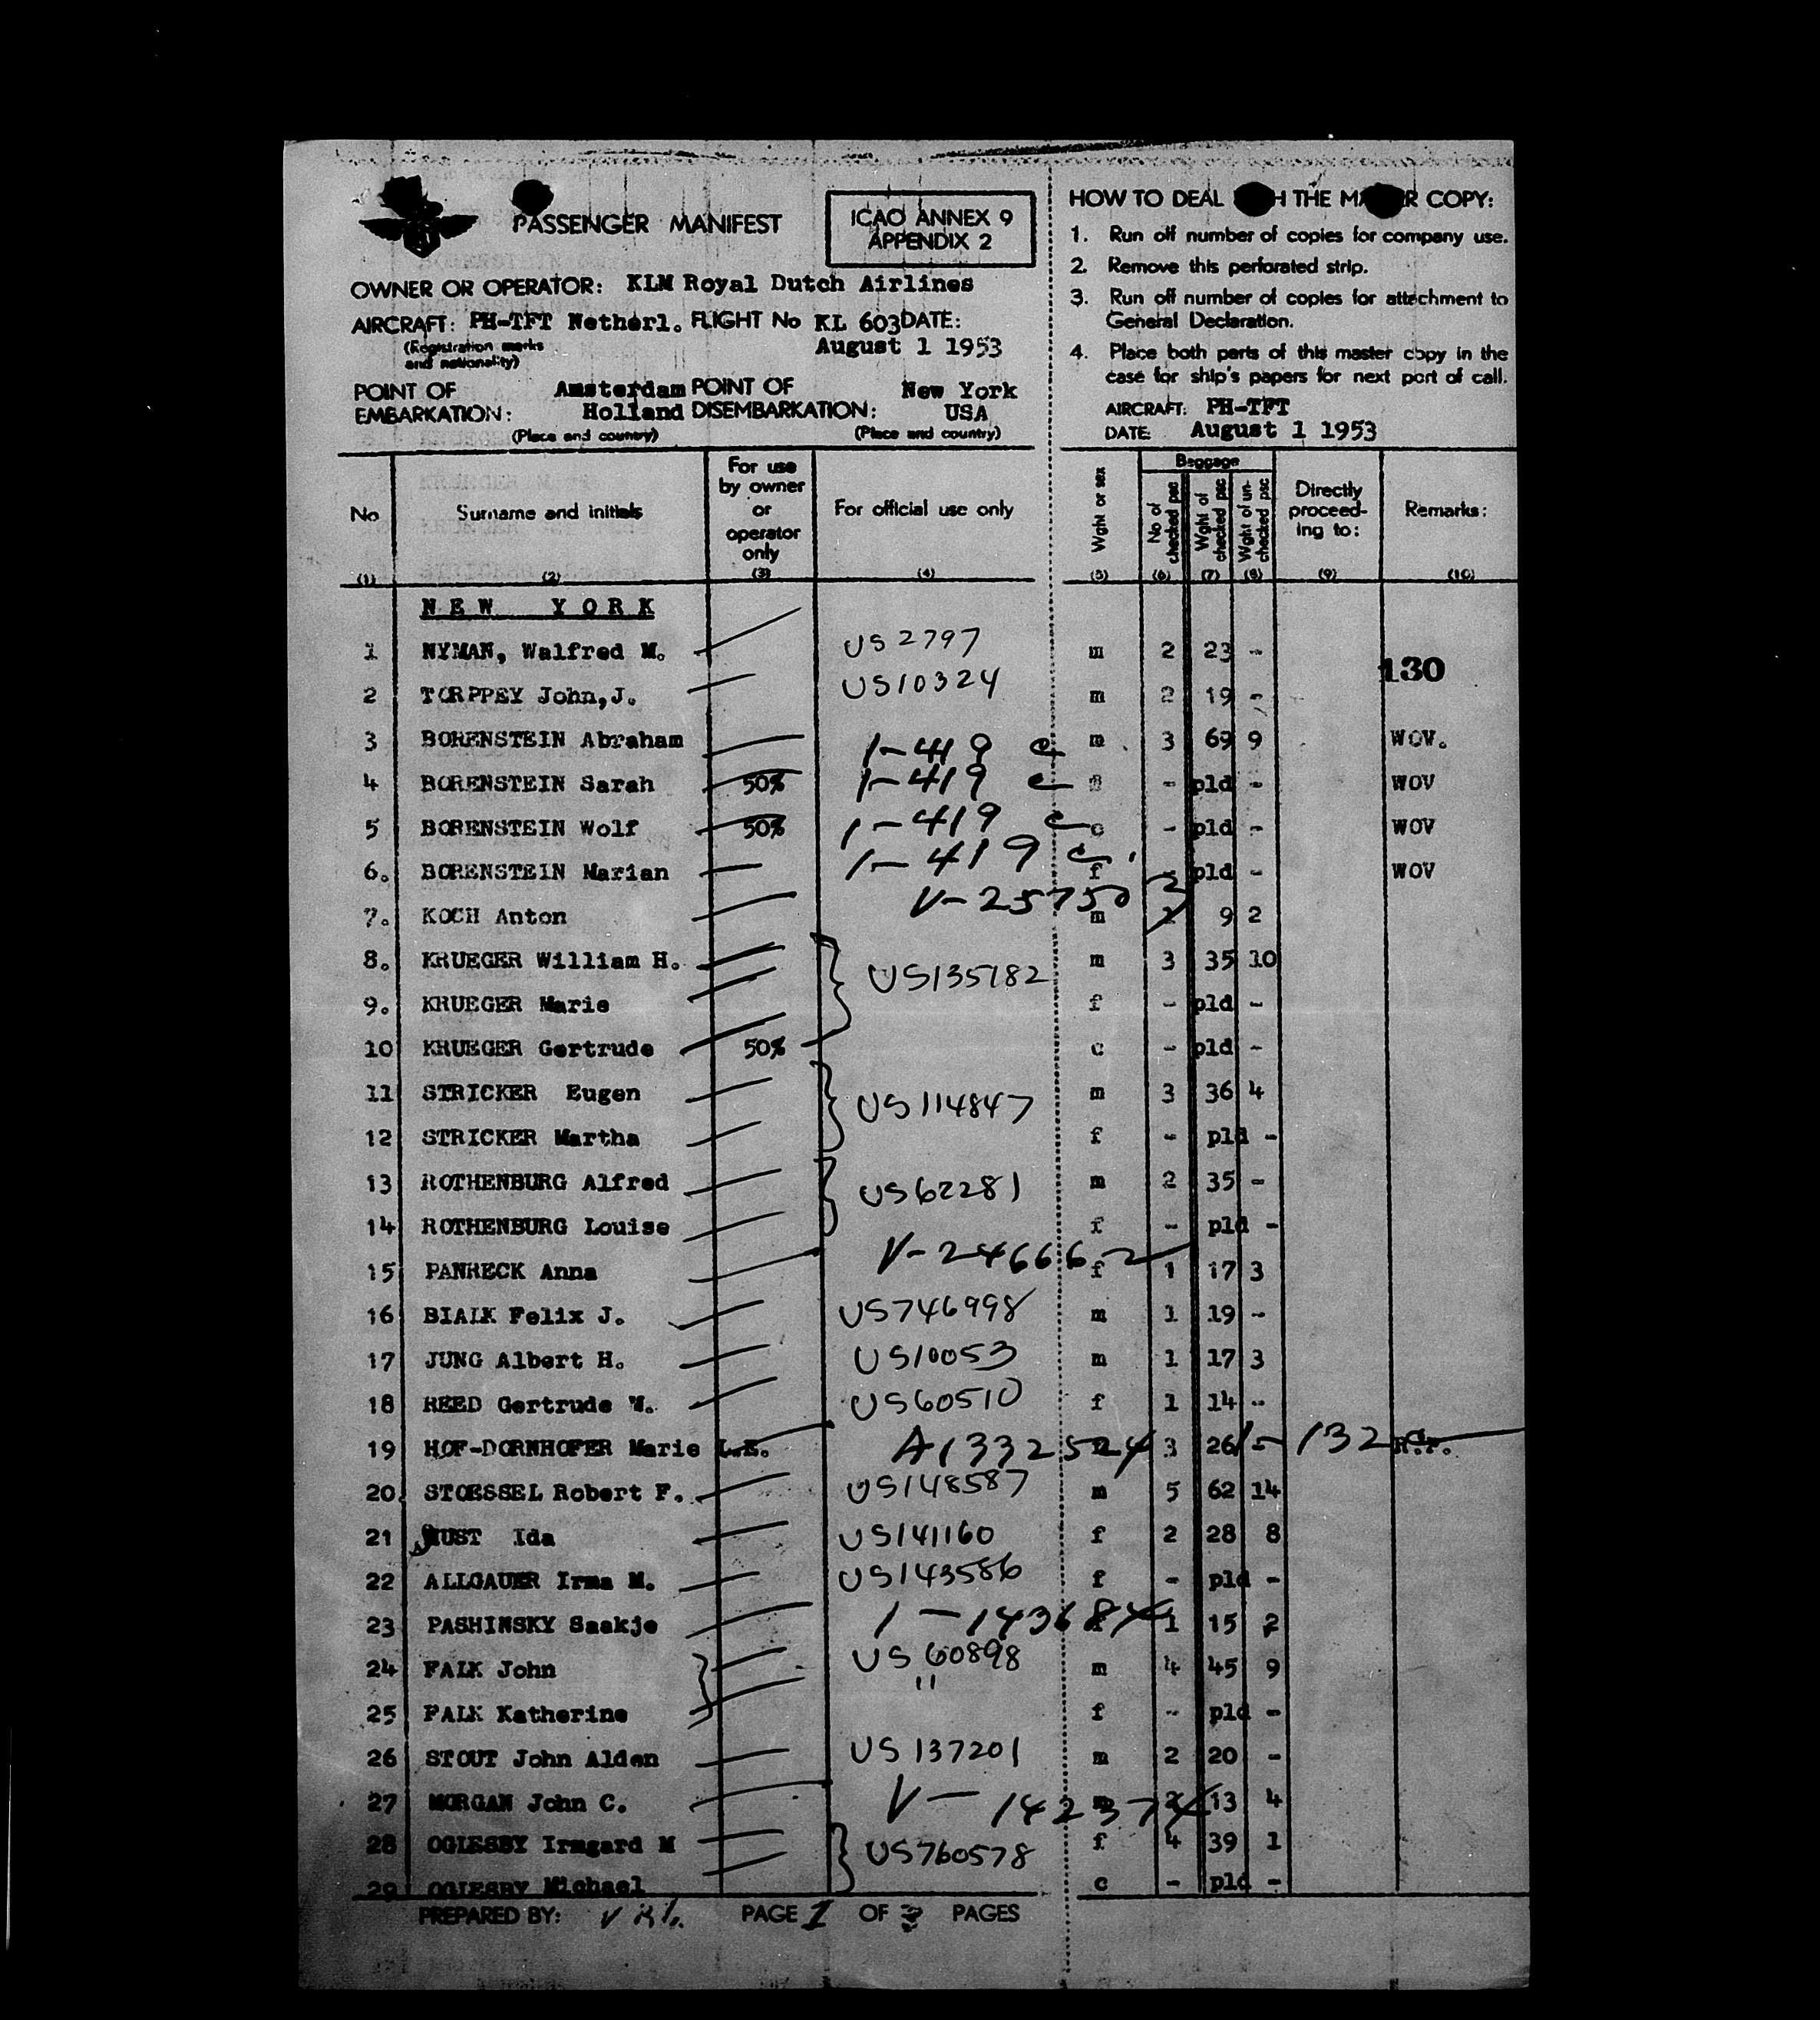 PASSENGER MANIFEST
ICAO ANNEX 9
APPENDIX 2
OWNER OR OPERATOR: KLM Royal Dutch Airlines
AIRCRAFT: PH-TFT Netherl. FLIGHT No KL 603 DATE:
(Registration marks and nationality) August 1 1953
POINT OF EMBARKATION: Amsterdam Holland POINT OF DISEMBARKATION: New York USA
(Place and country) (Place and country)
HOW TO DEAL THE COPY:
1. Run off number of copies for company use.
2. Remove this perforated strip.
3. Run off number of copies for attachment to
General Declaration.
4. Place both parts of this master copy in the
case for ship's papers for next port of call.
AIRCRAFT: PH-TFT
DATE August 1 1953
No (1) Surname and initials (2) For use by owner or operator only (3) For official use only (4) Wght or sex (5) Baggage No of checked psc (6) Wght of checked psc (7) Wght of un-checked psc (8) Directly proceed-ing to: (9) Remarks: (10)
NEW YORK
1 NYMAN, Walfred M. US 2797 m 2 23 -
130
2 TORPPEY John,J. US10324 m 2 19 -
3 BORENSTEIN Abraham 1-419 c m 3 69 9 WOV.
4 BORENSTEIN Sarah 50% 1-419 c - pld - WOV
5 BORENSTEIN Wolf 50% 1-419 c c - pld - WOV
6. BORENSTEIN Marian 1-419 c f - pld - WOV
7. KOCH Anton V-25750 m 9 2
8. KRUEGER William H. US135782 m 3 35 10
9. KRUEGER Marie f - pld -
10 KRUEGER Gertrude 50% c - pld -
11 STRICKER Eugen US114847 m 3 36 4
12 STRICKER Martha f - pld -
13 ROTHENBURG Alfred US62281 m 2 35 -
14 ROTHENBURG Louise f - pld -
15 PANHECK Anna V-246662 f 1 17 3
16 BIALK Felix J. US746998 m 1 19 -
17 JUNG Albert H. US10053 m 1 17 3
18 REED Gertrude W. US60510 f 1 14 -
19 HOF-DORNHOFER Marie L.E. A1332524 3 26 1-132
20. STOESSEL Robert F. US148587 m 5 62 14
21 Ida US141160 f 2 28 8
22 ALLGAUER Irma M. US143586 f - pld -
23 PASHINSKY Saakje 1-143684 1 15 2
24 FALK John US 60898 m 4 45 9
25 FALK Katherine " f - pld -
26 STOUT John Alden US 137201 m 2 20 -
27 MORGAN John C. V-142374 m 2 13 4
28 OGLESBY Irmgard M US760578 f 4 39 1
29 OGLESBY Michael c - pld -
PREPARED BY: PAGE 1 OF PAGES